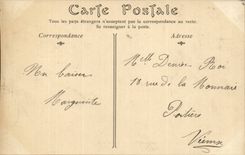 Carte Postale
Tous les pays étrangers n'acceptent pas la correspondance au verso.
Se renseigner à la poste.
Correspondance
Adresse
Un baiser
Marguerite
Mlle Denise Roi
10 rue de la Monnaie
Poitiers
Vienne